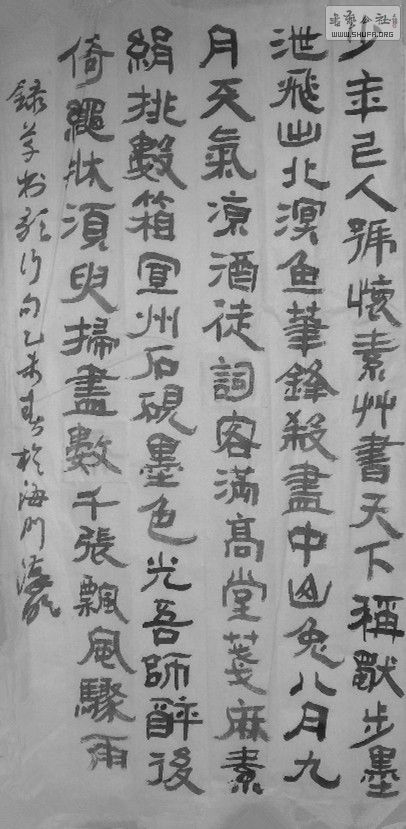 書藝公社
WWW.SHUFA.ORG
少年上人號懷素艸書天下稱獨步墨
池飛出北溟魚筆鋒殺盡中山兔八月九
月天氣凉酒徒詞客滿高堂箋麻素
絹排數箱宣州石硯墨色光吾師醉後
倚繩牀須臾掃盡數千張飄風驟雨
録草書歌行句乙未春於海門